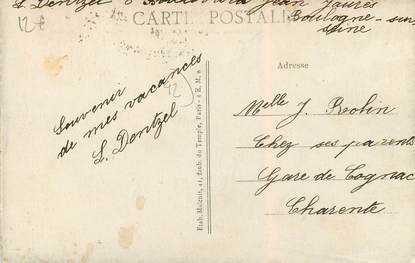 L. Dentzel Boulevard Jean Jaurès
Boulogne-sur-
Seine
12€
CARTE POSTALE
Souvenir
de mes vacances
L. Dentzel
12
Etab. Malcuit, 41, Faub. du Temple, Paris
Adresse
Melle J. Robin
Chez ses parents
Gare de Cognac
Charente